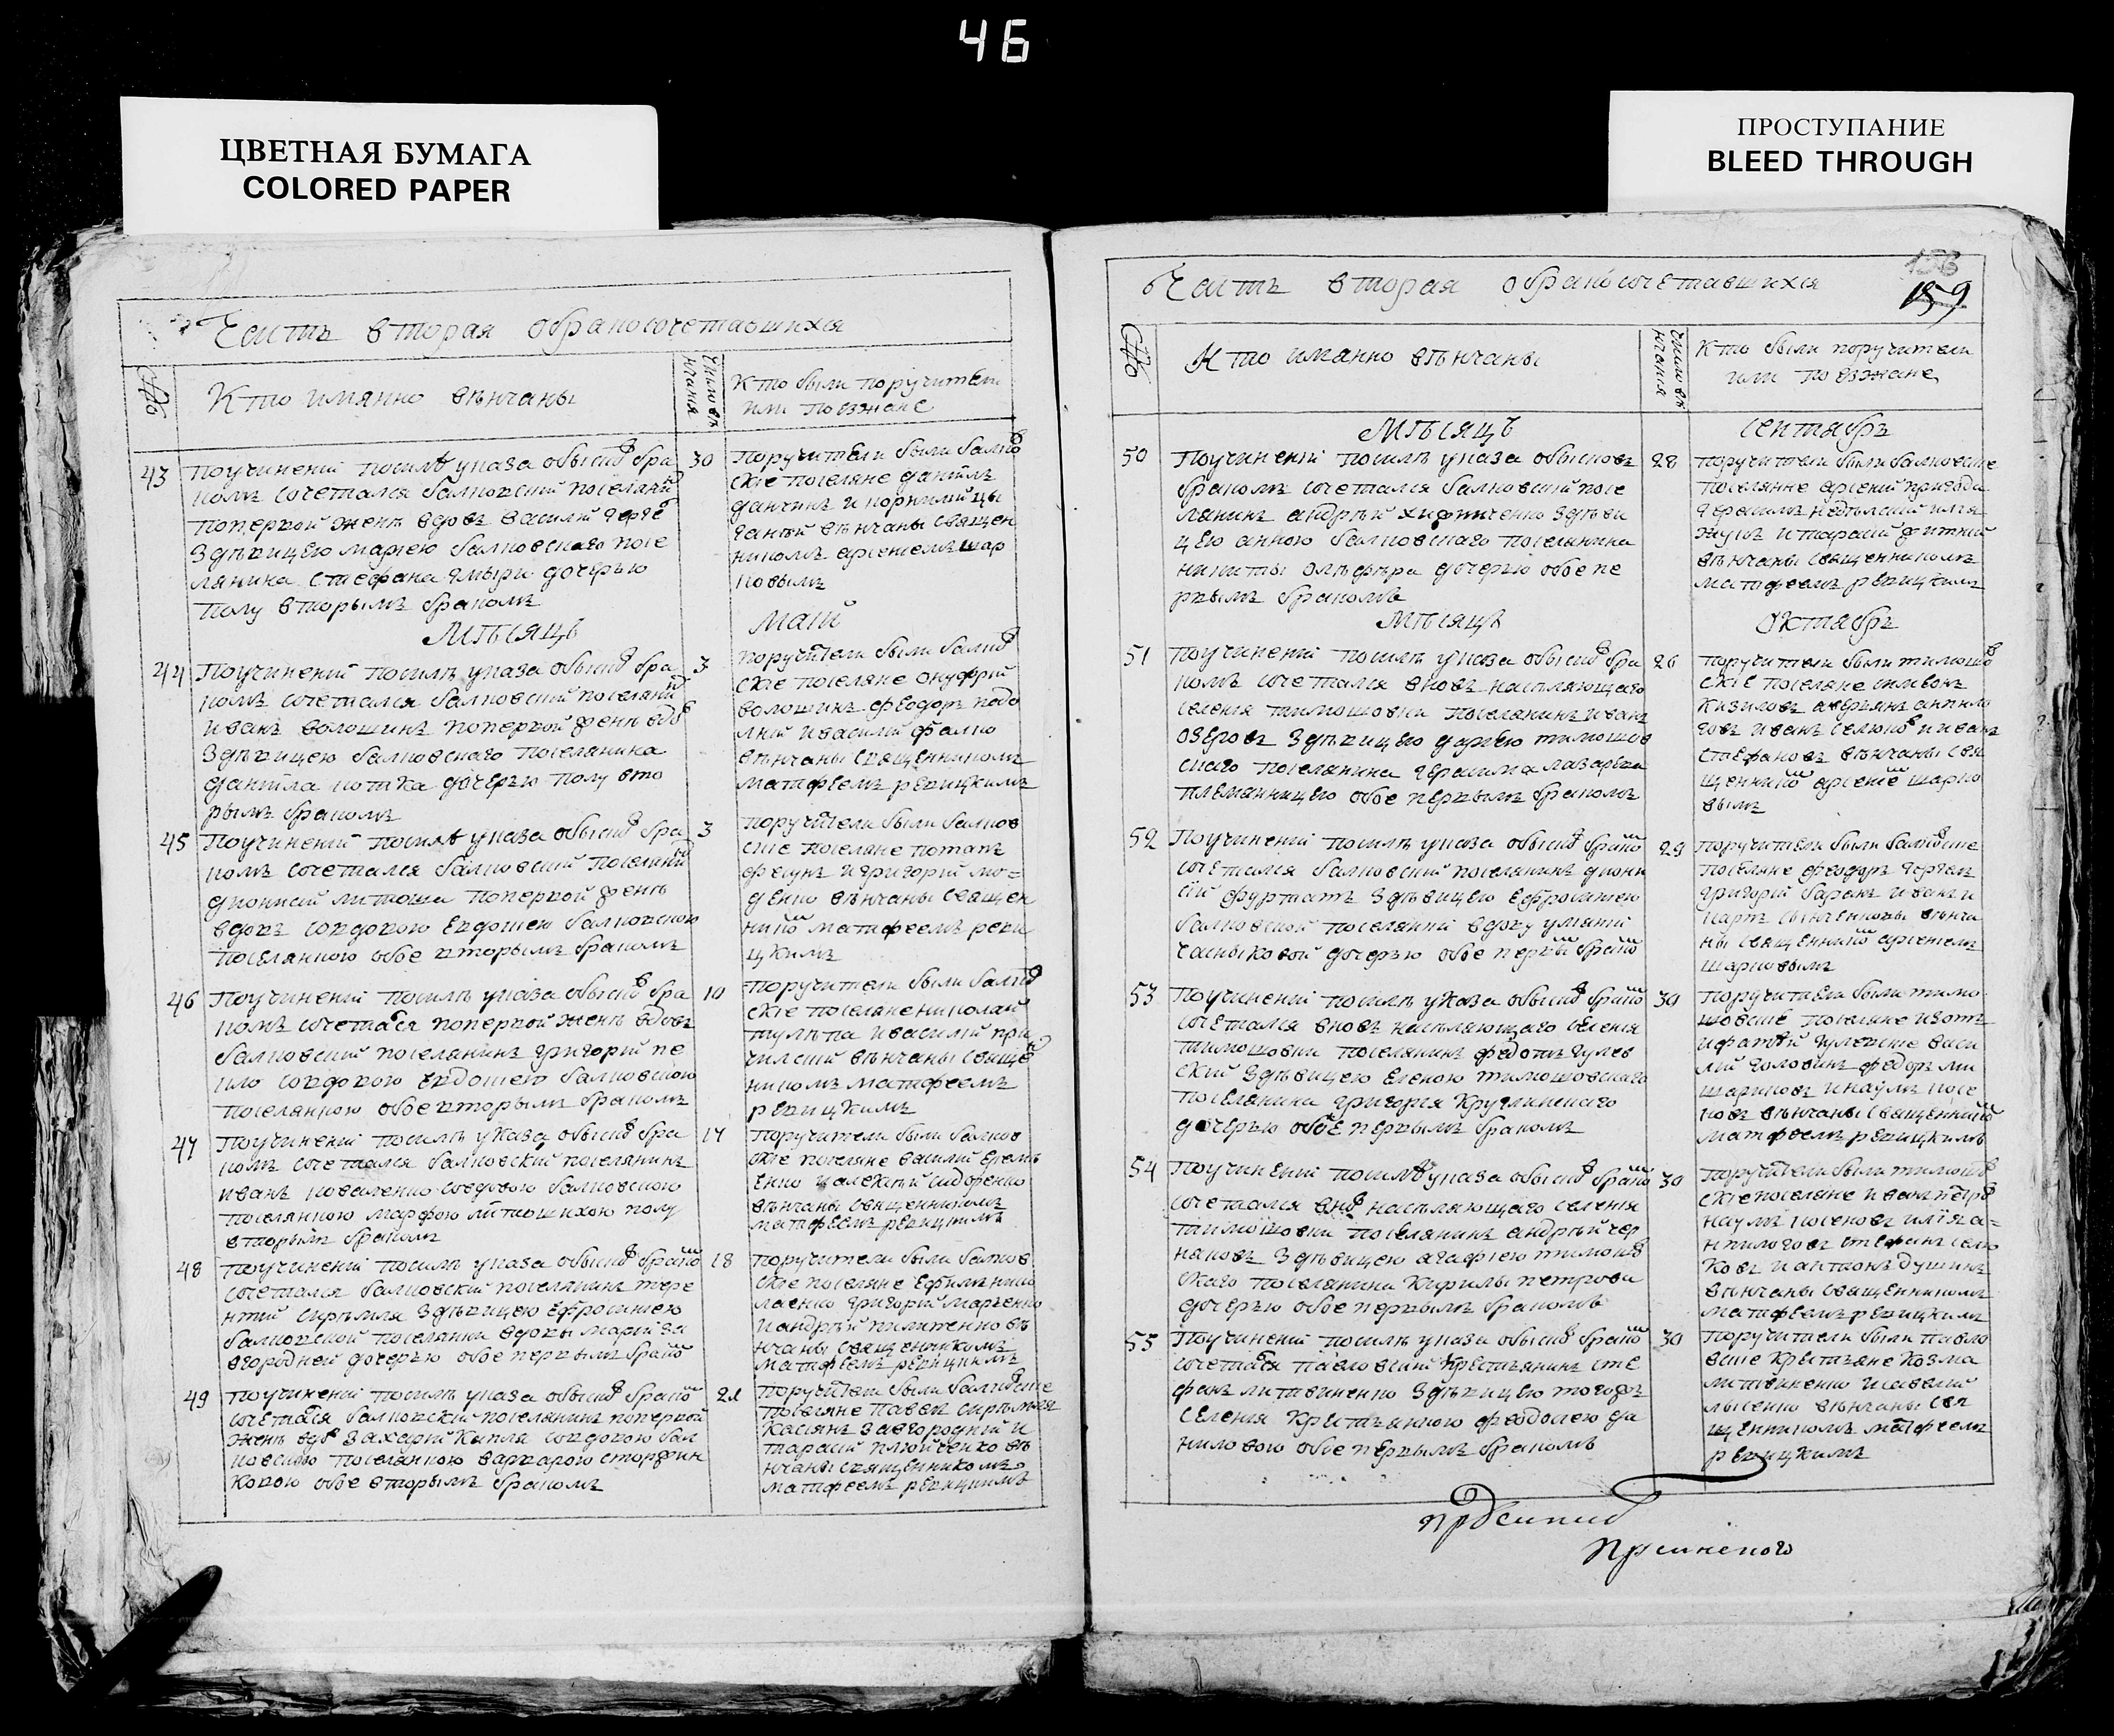 46
ЦВЕТНАЯ БУМАГА
COLORED PAPER
ПРОСТУПАНИЕ
BLEED THROUGH
Часть вторая обракосочетавшихся
№
Кто имянно вѣнчаны
Число вѣ
нчания
Кто были поручители
или поезжане
43
поучинении посилѣ указа обысков бра
комъ сочетался балковский поселянин
поперкой женѣ вдовъ василий
Здѣвицею мариею балковскаго посе
лянина стефана чмыри дочерью
полу вторымъ бракомъ
30
поручители были балков
ские поселяне даниилъ
данчинъ и корнилий цы
ганъй вѣнчаны священ
никомъ арсениемъ шар
ковымъ
Мѣсяцъ
Маий
44
Поучинении посилѣ указа обысков бра
комъ сочетался балковский поселянин
иванъ волошинъ поперкой женѣ вдов
Здѣвицею балковскаго поселянина
даниила дочерью полу вто
рымъ бракомъ
3
поручители были балков
ские поселяне онуфрий
волошинъ феодоръ
и василий
вѣнчаны священникомъ
матфеемъ рѣвицкимъ
45
Поучинении посилѣ указа обысков бра
комъ сочетался балковский поселянин
дионисий литоша поперкой женѣ
вдовъ совдовою евдокиею балковскою
поселянкою обое вторымъ бракомъ
3
поручители были балков
ские поселяне потапъ
и григорий мо=
денко вѣнчаны священ
ником матфеемъ реви
цкимъ
46
Поучинении посилѣ указа обысков бра
комъ сочетался поперкой женѣ вдовъ
балковский поселянинъ григорий пе
совдовою евдокиею балковскою
поселянкою обое вторымъ бракомъ
10
поручители были балков
ские поселяне николай
тулѣпа и василий при
вѣнчаны свяще
никомъ матфеемъ
рѣвицкимъ
47
Поучинении посилѣ указа обысков бра
комъ сочетался балковский поселянинъ
иванъ коваленко совдовою балковскою
поселянкою марфою литошихою полу
вторымъ бракомъ
17
поручители были балков
ские поселяне василий ерем
енко и алексий сидоренко
вѣнчаны священникомъ
матфеемъ рѣвицкимъ
48
поучинении посилѣ указа обысков браком
сочетался балковский поселянинъ тере
нтий сирѣмля Здѣвицею ефросиниею
балковской поселянки вдовы марии за
вгородней дочерью обое первымъ браком
18
поручители были балков
ские поселяне ефимъ нико
лаенко григорий марченко
и андрѣй пилипенко вѣ
нчаны священникомъ
матфеемъ рѣвицкимъ
49
поучинении посилѣ указа обысков браком
сочетался балковский поселянинъ поперкой
женѣ вдов захарий кипля совдовою бал
ковскою поселянкою варварою сторожин
ковою обое вторымъ бракомъ
21
поручители были балковские
поселяне павелъ сирѣмля
касиянъ завгородний и
тарасий вѣ
нчаны священникомъ
матфеемъ рѣвицкимъ
Часть вторая обракосочетавшихся
159
№
Кто имянно вѣнчаны
Число вѣ
нчания
Кто были поручители
или поезжане
Мѣсяцъ
Сентябрь
50
Поучинении посилѣ указа обысковъ
бракомъ сочетался балковский посе
лянинъ андрѣй Здѣви
цею анною балковскаго поселянина
никиты дочерью обое пе
рвымъ бракомъ
28
поручители были балковские
поселянне арсений
вѣнчаны священникомъ
матфеемъ рѣвицкимъ
Мѣсяцъ
Октябрь
51
Поучинении посилѣ указа обысков бра
комъ сочетался вновъ насѣляющаго
селения тимошовки поселянинъ иванъ
озеровъ Здѣвицею дариею тимошов
скаго поселянина герасима лазарева
племянницею обое первымъ бракомъ
26
поручители были тимошов
ские поселяне симеонъ
кизиловъ аверъянъ
иванъ и иванъ
стефановъ вѣнчаны свя
щенником арсением шарко
вымъ
52
Поучинении посилѣ указа обысков браком
сочетался балковский поселянинъ диони
сий Здѣвицею ефросиниею
балковской поселянки вдовы
дочерью обое первым браком
29
поручители были балковские
поселяне феодоръ
григорий баранъ и иванъ и
карпъ вѣнча
ны священником арсениемъ
шарковымъ
53
Поучинении посилѣ указа обысков браком
сочетался вновъ насѣляющаго селения
тимошовки поселянинъ федотъ гулев
ский Здѣвицею еленою тимошовскаго
поселянина григория круглинскаго
дочерью обое первымъ бракомъ
30
поручители были тимо
шовские поселяне изотъ
и фатѣй гулевские васи
лий головинъ федоръ ми
шариковъ и наумъ косе
новъ вѣнчаны священником
матфеемъ рѣвицкимъ
54
Поучинении посилѣ указа обысков браком
сочетался внов насѣляющаго селения
тимошовки поселянинъ андрѣй чер
каковъ Здѣвицею агафиею тимошов
скаго поселянина кирилы петрова
дочерью обое первымъ бракомъ
30
поручители были тимошов
ские поселяне иванъ петров
наумъ косеновъ илия а=
нпилоговъ стефанъ селю
ковъ и антонъ душинъ
вѣнчаны священникомъ
матфеемъ рѣвицкимъ
55
Поучинении посилѣ указа обысков браком
сочетался павловский крестьянинъ сте
фанъ литвиненко Здѣвицею тогожъ
селения крестьянкою феодосиею да
ниловою обое первымъ бракомъ
30
поручители были павло
вские крестьяне козма
литвиненко и савелий
лысенко вѣнчаны свя
щенникомъ матфеемъ
рѣвицкимъ